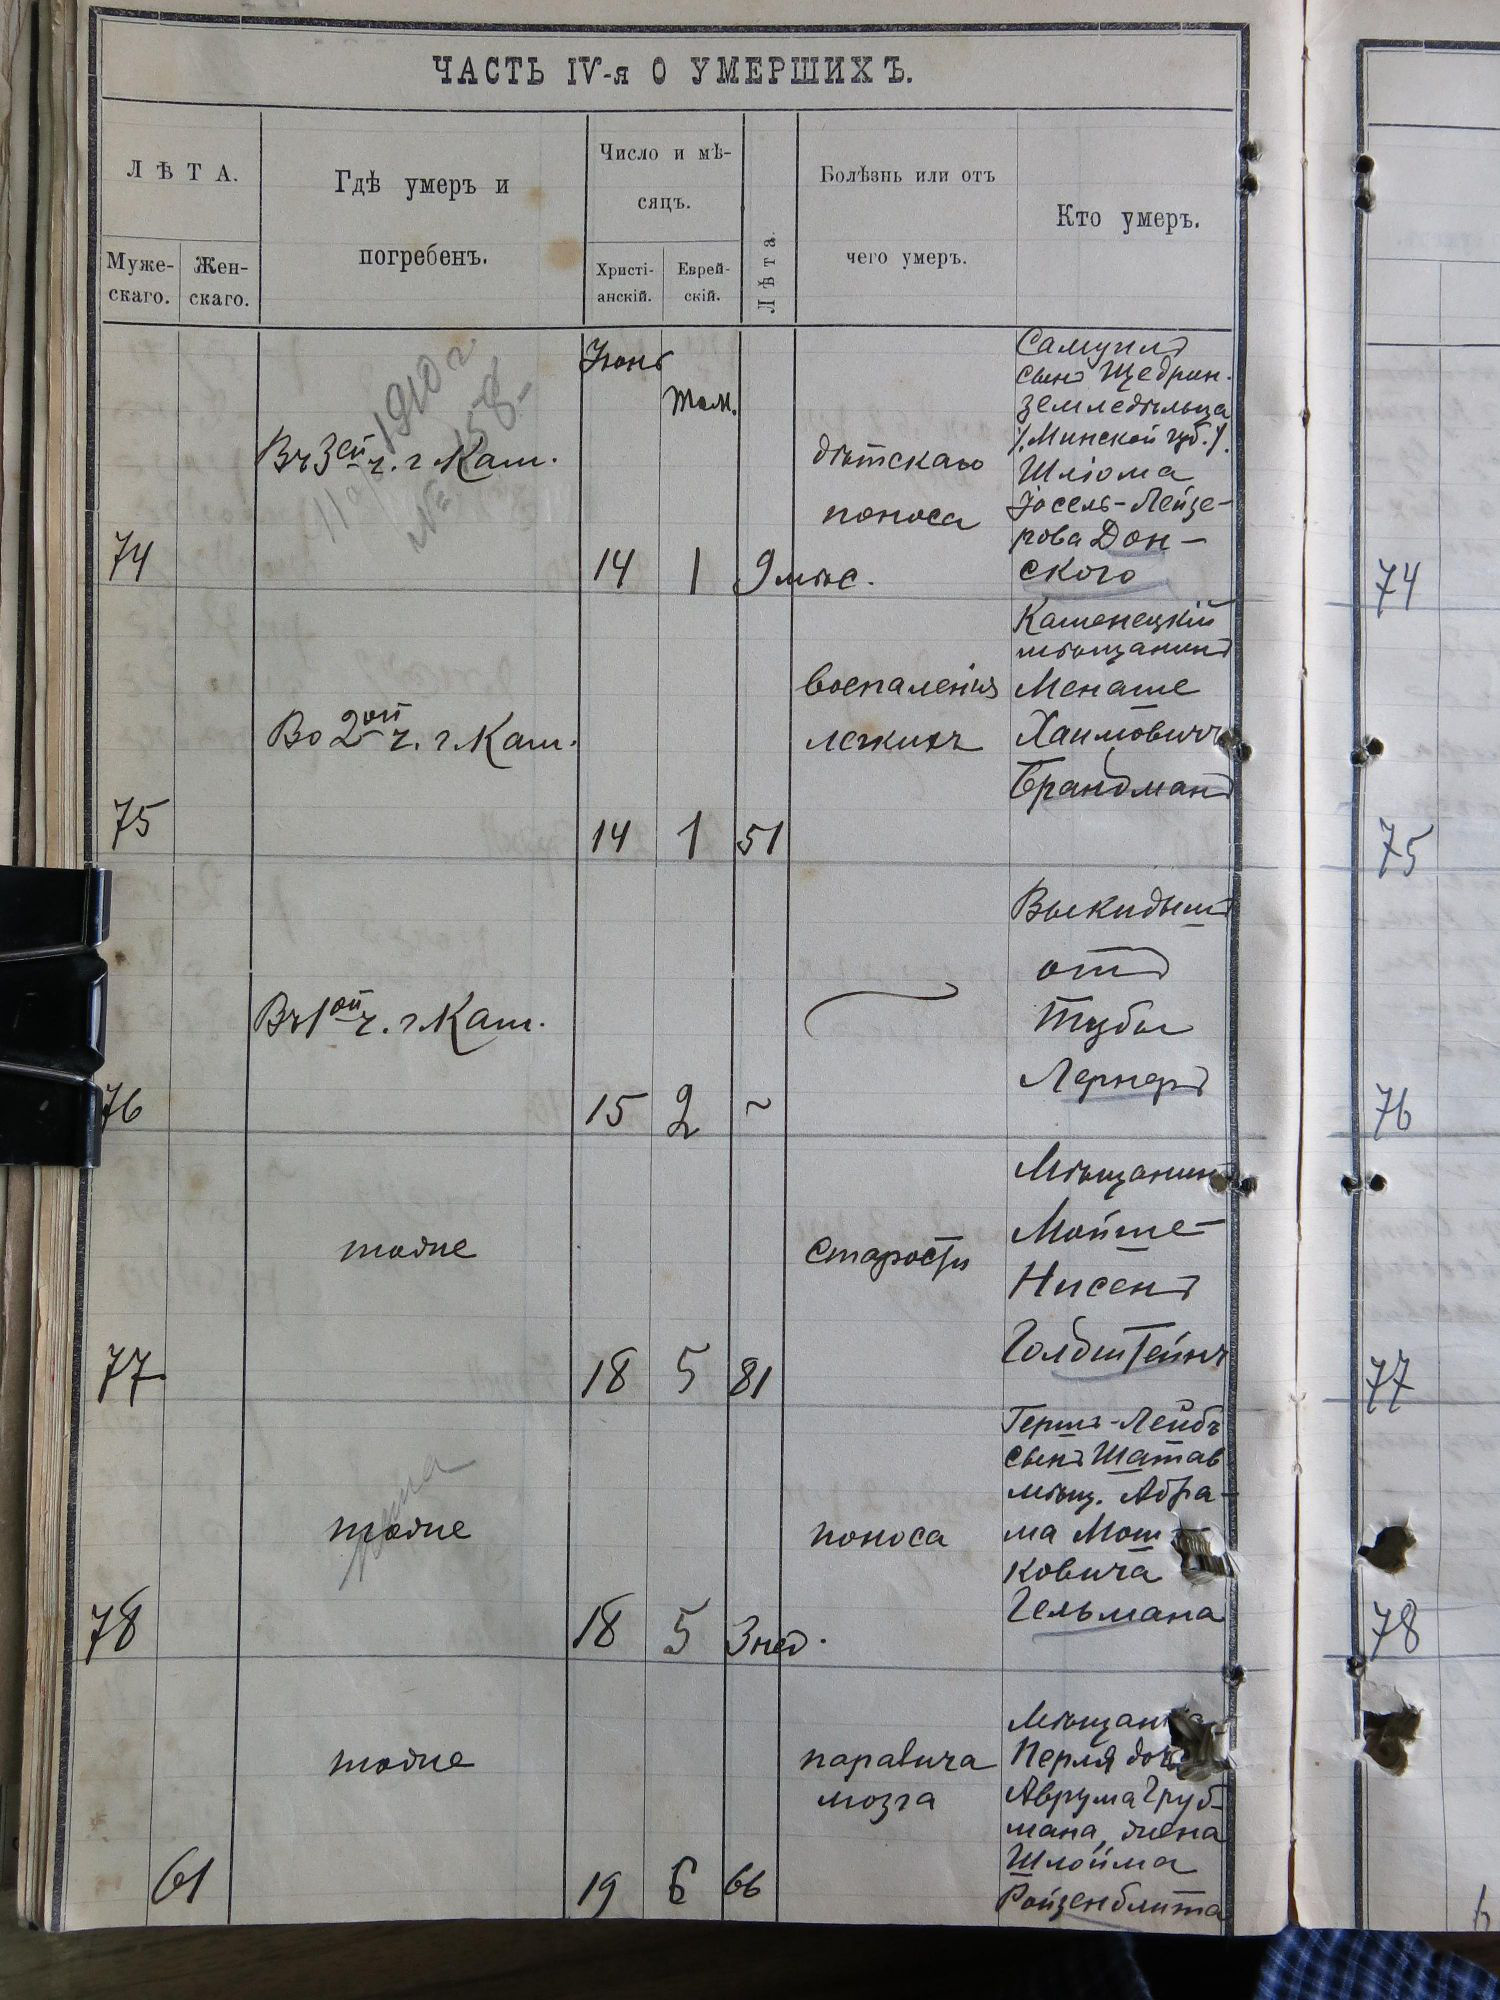 ЧАСТЬ IV-я О УМЕРШИХЪ.
ЛѢТА.
Мужескаго.
Женскаго.
Гдѣ умеръ и
погребенъ.
Число и мѣ-
сяцъ.
Христі-
анскій.
Еврей-
скій.
Лѣта.
Болѣзнь или отъ
чего умеръ.
Кто умеръ.
Іюнь
Там.
1910 г.
№ 158
74
Въ 3ей ч. г Кам.
14
1
9 мѣс.
дѣтскаго
поноса
Самуилъ
сынъ Щедрин.
земледѣльца
/. Минской губ./.
Шліома
Іосель-Лейзе-
рова Дон-
ского
74
75
Во 2ой ч. г. Кам.
14
1
51
воспаленія
легкихъ
Каменецкій
мѣщанинъ
Менаше
Хаимовичъ
Брандманъ
75
76
Въ 1ой ч. г. Кам.
15
2
~
Выкидышъ
отъ
Тубы
Лернеръ
76
77
тоже
18
5
81
старости
Мѣщанинъ
Мойше-
Нисенъ
Голдштейнъ
77
78
тоже
18
5
3 нед.
поноса
Гершъ-Лейбъ
сынъ Шатав
мѣщ. Абра-
ма Мош
ковича
Гельмана
78
61
тоже
19
6
66
паралича
мозга
Мѣщанка
Перля дочь
Аврума Груб-
мана, жена
Шлойма
Ройзенблита